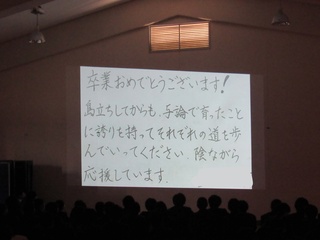 卒業おめでとうございます!
島立ちしてからも、与論で育ったこと
に誇りを持ってそれぞれの道を歩
んでいってください。陰ながら
応援しています。